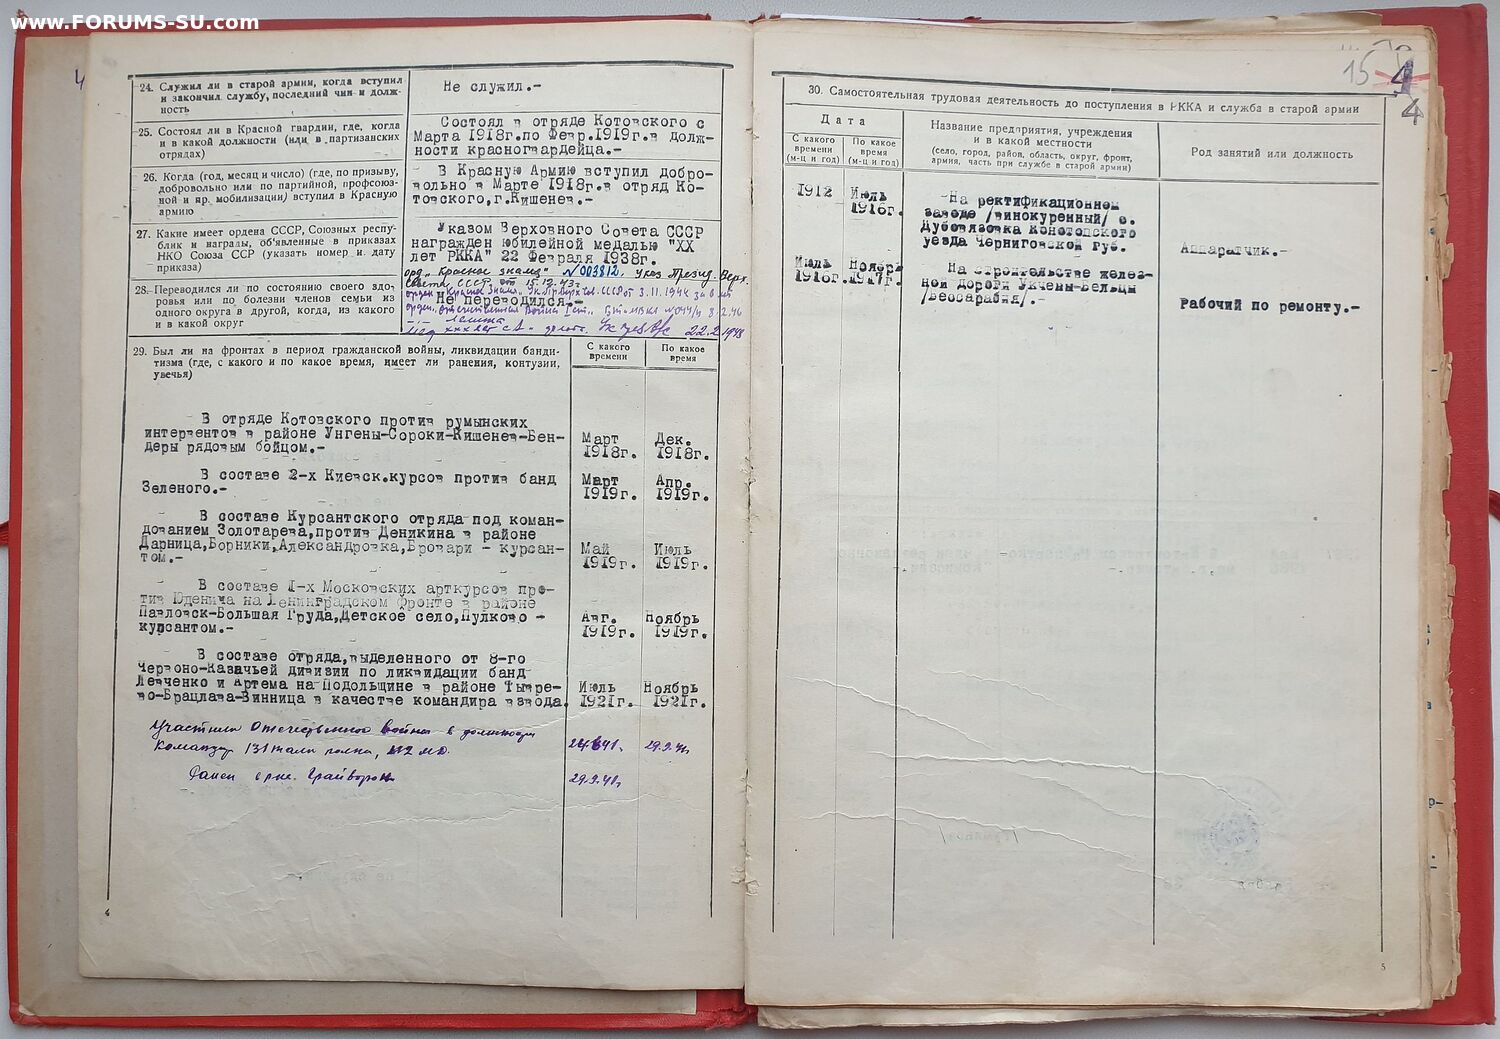 www.FORUMS-SU.com
24. Служил ли в старой армии, когда вступил
и закончил службу, последний чин и долж-
ность
Не служил.-
25. Состоял ли в Красной гвардии, где, когда
и в какой должности (или в партизанских
отрядах)
Состоял в отряде Котовского с
Марта 1918г.по Февр.1919г.в долж-
ности красногвардейца.-
26. Когда (год, месяц и число) (где, по призыву,
добровольно или по партийной, профсоюз-
ной и пр. мобилизации) вступил в Красную
армию
В Красную Армию вступил добро-
вольно в Марте 1918г.в отряд Ко-
товского,г.Кишенев.-
27. Какие имеет ордена СССР, Союзных респу-
блик и награды, об'явленные в приказах
НКО Союза ССР (указать номер и дату
приказа)
Указом Верховного Совета СССР
награжден юбилейной медалью "XX
лет РККА" 22 Февраля 1938г.
орд. "Красное знамя" №003812, Указ Презид. Верх.
Совета СССР от 15.12.43г.
28. Переводился ли по состоянию своего здо-
ровья или по болезни членов семьи из
одного округа в другой, когда, из какого
и в какой округ
Не переводился.-
22.2.1948
29. Был ли на фронтах в период гражданской войны, ликвидации банди-
тизма (где, с какого и по какое время, имеет ли ранения, контузии,
увечья)
С какого
времени
По какое
время
В отряде Котовского против румынских
интервентов в районе Унгены-Сороки-Кишенев-Бен-
деры рядовым бойцом.-
Март
1918г.
Дек.
1918г.
В составе 2-х Киевск.курсов против банд
Зеленого.-
Март
1919г.
Апр.
1919г.
В составе Курсантского отряда под коман-
дованием Золотарева,против Деникина в районе
Дарница,Борники,Александровка,Бровари - курсан-
том.-
Май
1919г.
Июль
1919г.
В составе I-х Московских арткурсов про-
тив Юденича на Ленинградском фронте в районе
Павловск-Большая Груда,Детское село,Пулково -
курсантом.-
Авг.
1919г.
Ноябрь
1919г.
В составе отряда,выделенного от 8-го
Червоно-Казачьей дивизии по ликвидации банд
Левченко и Артема на Подольщине в районе Тывре-
во-Брацлава-Винница в качестве командира взвода.
Июль
1921г.
Ноябрь
1921г.
Участник Отечественной войны в должности
Командир 131 полка,
29.9.41
Ранен
29.9.41
4
15
4
4
30. Самостоятельная трудовая деятельность до поступления в РККА и служба в старой армии
Дата
С какого
времени
(м-ц и год)
По какое
время
(м-ц и год)
Название предприятия, учреждения
и в какой местности
(село, город, район, область, округ, фронт,
армия, часть при службе в старой армии)
Род занятий или должность
1912
Июль
1916г.
На ректификационном
заводе /винокуренный/ с.
Дубовязовка Конотопского
уезда Черниговской губ.
Аппаратчик.-
Июль
1916г.
Ноябрь
1917г.
На строительстве желез-
ной дороги Укчены-Бельцы
/Бессарабия/.-
Рабочий по ремонту.-
5